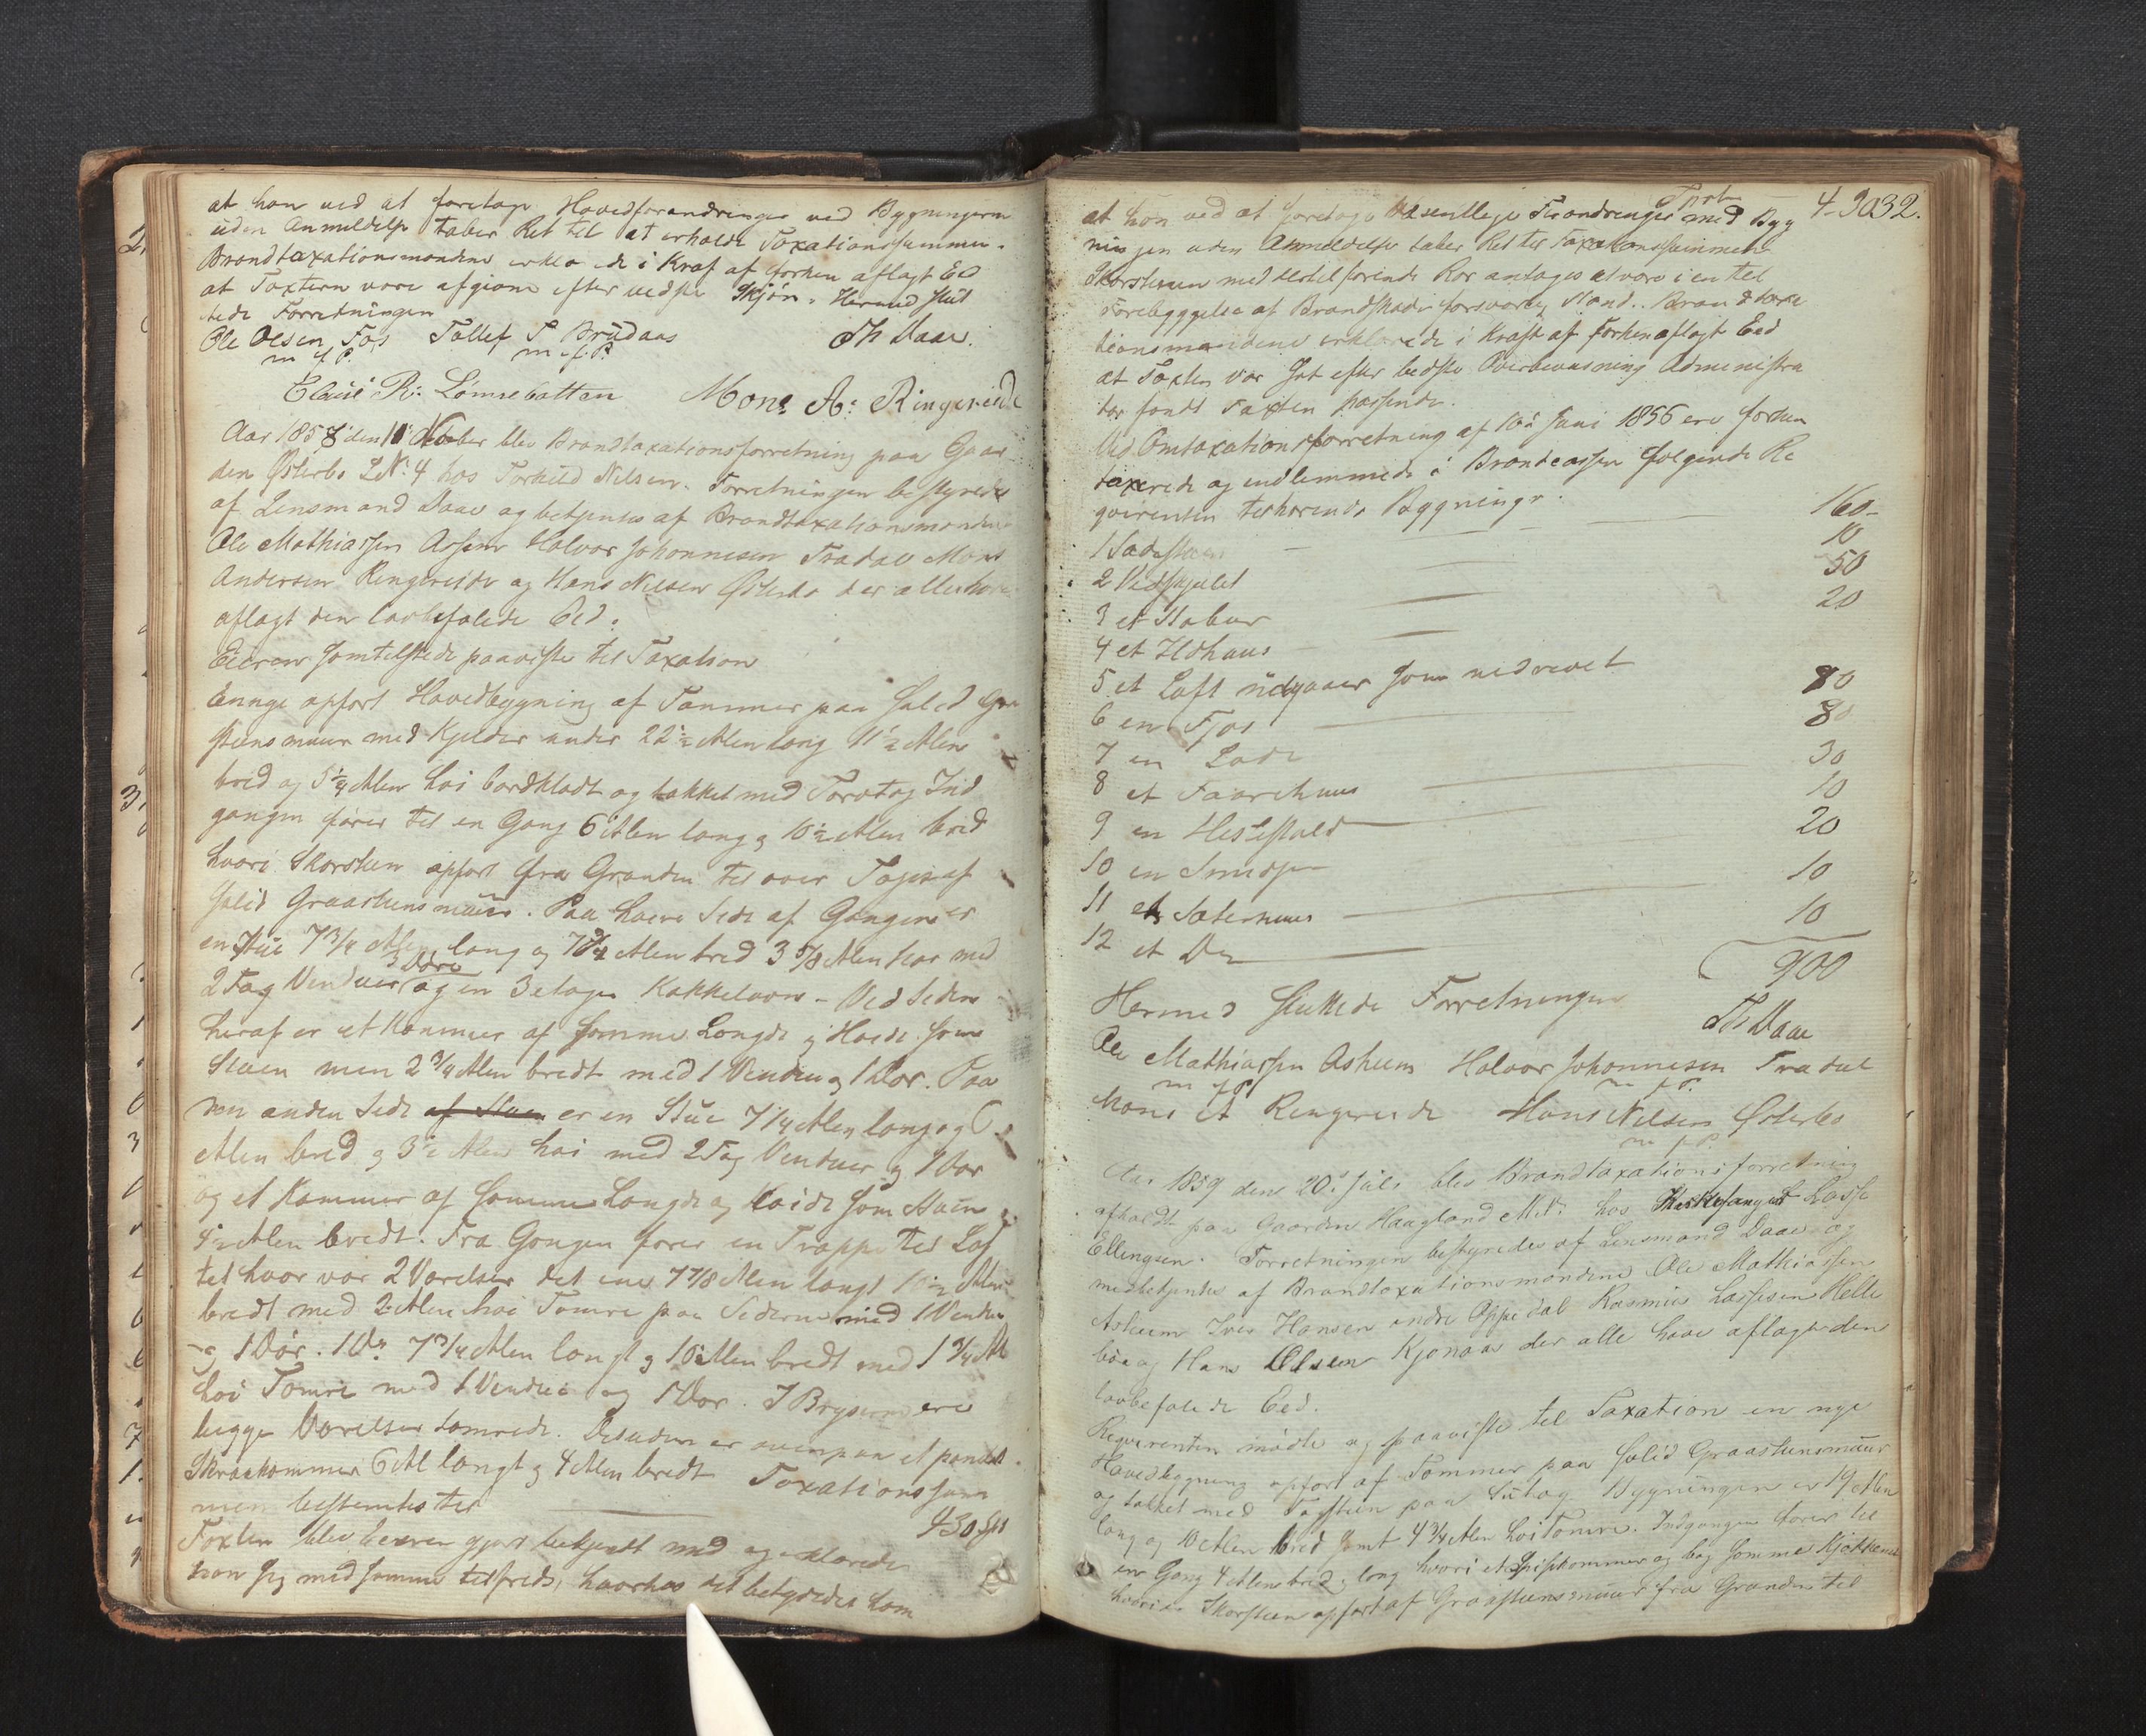 at han ved at foretage Hovedforandringer ved Bygningerne
uden Anmeldelse taber Ret til at erholde Taxationssummen.
Brandtaxationsmændene erklærede i Kraf af forhen aflagt Eed
at Taxterne vare afgivne efter bedste Skjøn. Hermed slut
tede Forretningen
Ole Olsen Fos Tollef P Brudaas Th Daae.
m f P. m. f. P.
Claus R: Lømsebotten Mons A: Ringereide
Aar 1858 den 11 October blev Brandtaxationsforretning paa Gaar
den Østerbo LN: 4 hos Torkild Nilsen. Forretningen bestyredes
af Lensmand Daae og betjentes af Brandtaxationsmændene
Ole Mathiassen Asheim Halvor Johannesen Tradal Mons
Andersen Ringereide og Hans Nilsen Østerbo der alle have
aflagt den lovbefalede Eed.
Eieren som tilstede paaviste til Taxation
En nye opført Hovedbygning af Tømmer paa Solid Graa
steensmuur med Kjelder under 22½ Alen lang 11½ Alen
bred og 5¼ Alen høi bordklædt og takket med Torvtag Ind
gangen fører til en Gang 6 Alen lang og 10½ Alen bred
hvori Skorsteen opført fra Grunden til over Taget af
solid Graasteensmuur. Paa høire Side af Gangen er
en Stue 7¾ Alen lang og 7¾ Alen bred 3⅝ Alen høi med
2 Fag Venduer 3 Døre og en 3 etages Kakkelovn - Ved Siden
heraf er et Kammer af samme Længde og Høide som
Stuen men 2¾ Alen bredt med 1 Vindue og 1 Dør. Paa
den anden Side af Stuen er en Stue 7¼ Alen lang og 6
Alen bred og 3½ Alen høi med 2 Fag Venduer og 1 Dør
og et Kammer af samme Længde og Høide som Stuen
4½ Alen bredt. Fra Gangen fører en Trappe til Lof
tet hvor var 2 Værelser det ene 7⅞ Alen langt 10½ Alen
bredt med 2 Alen høi Tømre paa Siderne med 1 Vendue
og 1 Dør. 1 Do 7¾ Alen langt og 10½ Alen bredt med 1¾ Al
høi Tømre med 1 Vendue og 1 Dør. I Brystene ere
begge Værelser tømrede. Desuden er ovenpaa et panelt
Skraakammer 6 Al langt og 4 Alen bredt Taxationssum
men bestemtes til 430 Spd
Taxten blev Eieren gjort bekjendt med og erklærede
han sig med samme tilfreds, hvorhos det betydedes ham
4-9032.
at han ved at foretage væsentlige Forandringer med Byg
ningen uden Anmeldelse taber Ret til Taxationssummen
Skorsteen med dertil førende Rør antages at være i en til
Forebyggelse af Brandskade forsvarlig Stand. Brandtaxa
tionsmændene erklærede i Kraft af forhen aflagt Eed
at Taxten var Sat efter bedste Overbeviisning Administra
tor fandt Taxten passende.
Ved Omtaxationsforretning af 10de Juni 1856 ere forhen
taxerede og indlemmede i Brandcassen følgende Re
qvirenten tilhørende Bygninger:
1 Ladestuen 160-
2 Vedskjulet 10
3 et Stabur 50
4 et Ildhuus 20
5 et Loft udgaaer som nedrevet
6 en Fjos 80
7 en Lade 80
8 et Faarehuus 30
9 en Hestestald 10
10 en Smidje 20
11 et Sæterhuus 10
12 et Do 10
900
Hermed sluttede Forretningen
Th Daae
Ole Mathiassen Asheim Halvor Johannesen Tradal
m f P. m f P.
Mons A Ringereide Hans Nilsen Østerbo
m f P.
Aar 1859 den 20de Juli blev Brandtaxationsforretning
afholdt paa Gaarden Haugland M.N: hos Kirkesanger Lasse
Ellingsen. Forretningen bestyredes af Lensmand Daae og
medbetjentes af Brandtaxationsmændene Ole Mathiassen
Asheim Iver Hansen indre Oppedal Rasmus Lassesen Helle
bøe og Hans Olsen Kjønaas der alle have aflagt den
lovbefalede Eed.
Reqvirenten mødte og paaviste til Taxation en nye
Hovedbygning opført af Tømmer paa Solid Graasteensmuur
og takket med Tagsteen paa Sutag Bygningen er 19 Alen
lang og 10 Alen bred samt 4¾ Alen høi Tømre. Indgangen fører til
en Gang 4 Alen bred og lang hvori et Spiskammer og bag samme Kjøkkenet
hvori en Skorsteen opført af Graasteensmuur fra Grunden til